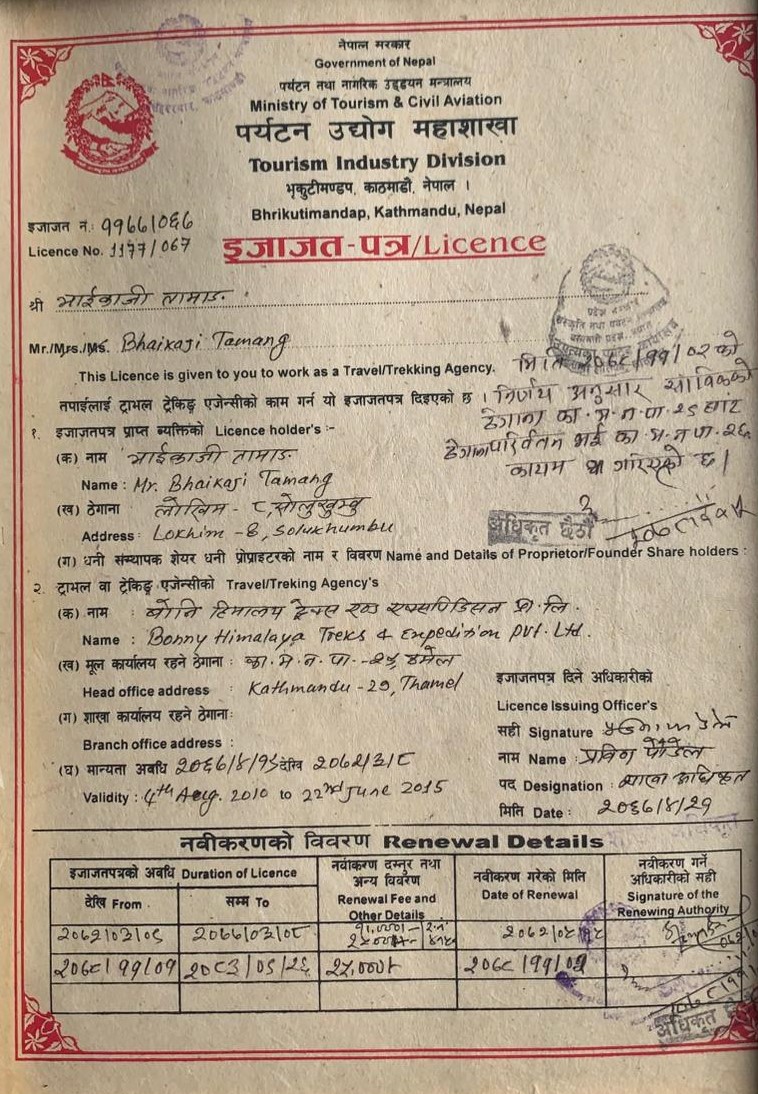 नेपाल सरकार
Government of Nepal
पर्यटन तथा नागरिक उड्डयन मन्त्रालय
Ministry of Tourism & Civil Aviation
पर्यटन उद्योग महाशाखा
Tourism Industry Division
भृकुटीमण्डप, काठमाडौं, नेपाल ।
Bhrikutimandap, Kathmandu, Nepal
इजाजत नं.: ११७७/०६७
Licence No. 1177/067
इजाजत-पत्र/Licence
श्री भाईकाजी तामाङ
Mr./Mrs./Ms. Bhaikaji Tamang
This Licence is given to you to work as a Travel/Trekking Agency.
तपाईलाई ट्राभल ट्रेकिङ्ग एजेन्सीको काम गर्न यो इजाजतपत्र दिइएको छ ।
मिति २०७८/११/०२ को
निर्णय अनुसार साविकको
ठेगाना का.म.न.पा.२९ बाट
ठेगाना परिवर्तन भई का.म.न.पा. २६
कायम गरिएको छ।
अधिकृत छैठौं
१. इजाजतपत्र प्राप्त ब्यक्तिको Licence holder's :-
(क) नाम भाईकाजी तामाङ
Name : Mr. Bhaikaji Tamang
(ख) ठेगाना लोखिम - ८, सोलुखुम्बु
Address : Lokhim -8, Solukhumbu
(ग) धनी संस्थापक शेयर धनी प्रोप्राइटरको नाम र विवरण Name and Details of Proprietor/Founder Share holders :
२. ट्राभल वा ट्रेकिङ्ग एजेन्सीको Travel/Treking Agency's
(क) नाम : बोनि हिमालय ट्रेक्स एण्ड एक्सपिडिसन प्रा. लि.
Name : Bonny Himalaya Treks & Expedition Pvt. Ltd.
(ख) मूल कार्यालय रहने ठेगाना : का. म. न. पा. -२९, ठमेल
Head office address : Kathmandu -29, Thamel
(ग) शाखा कार्यालय रहने ठेगानाः
Branch office address :
(घ) मान्यता अवधि २०६७/४/१९ देखि २०७२/३/८
Validity : 4th Aug. 2010 to 22nd June 2015
इजाजतपत्र दिने अधिकारीको
Licence Issuing Officer's
सही Signature
नाम Name : प्रविण पौडेल
पद Designation : शाखा अधिकृत
मिति Date : २०६७/४/२१
नवीकरणको विवरण Renewal Details
इजाजतपत्रको अवधि Duration of Licence
देखि From
सम्म To
नवीकरण दस्तुर तथा
अन्य विवरण
Renewal Fee and
Other Details
नवीकरण गरेको मिति
Date of Renewal
नवीकरण गर्ने
अधिकारीको सही
Signature of the
Renewing Authority
२०७२/०३/०९ २०७७/०३/०८
२०७८/११/०१ २०८३/०५/२६ २५,०००।- २०७८/११/०२
अधिकृत छैठौं